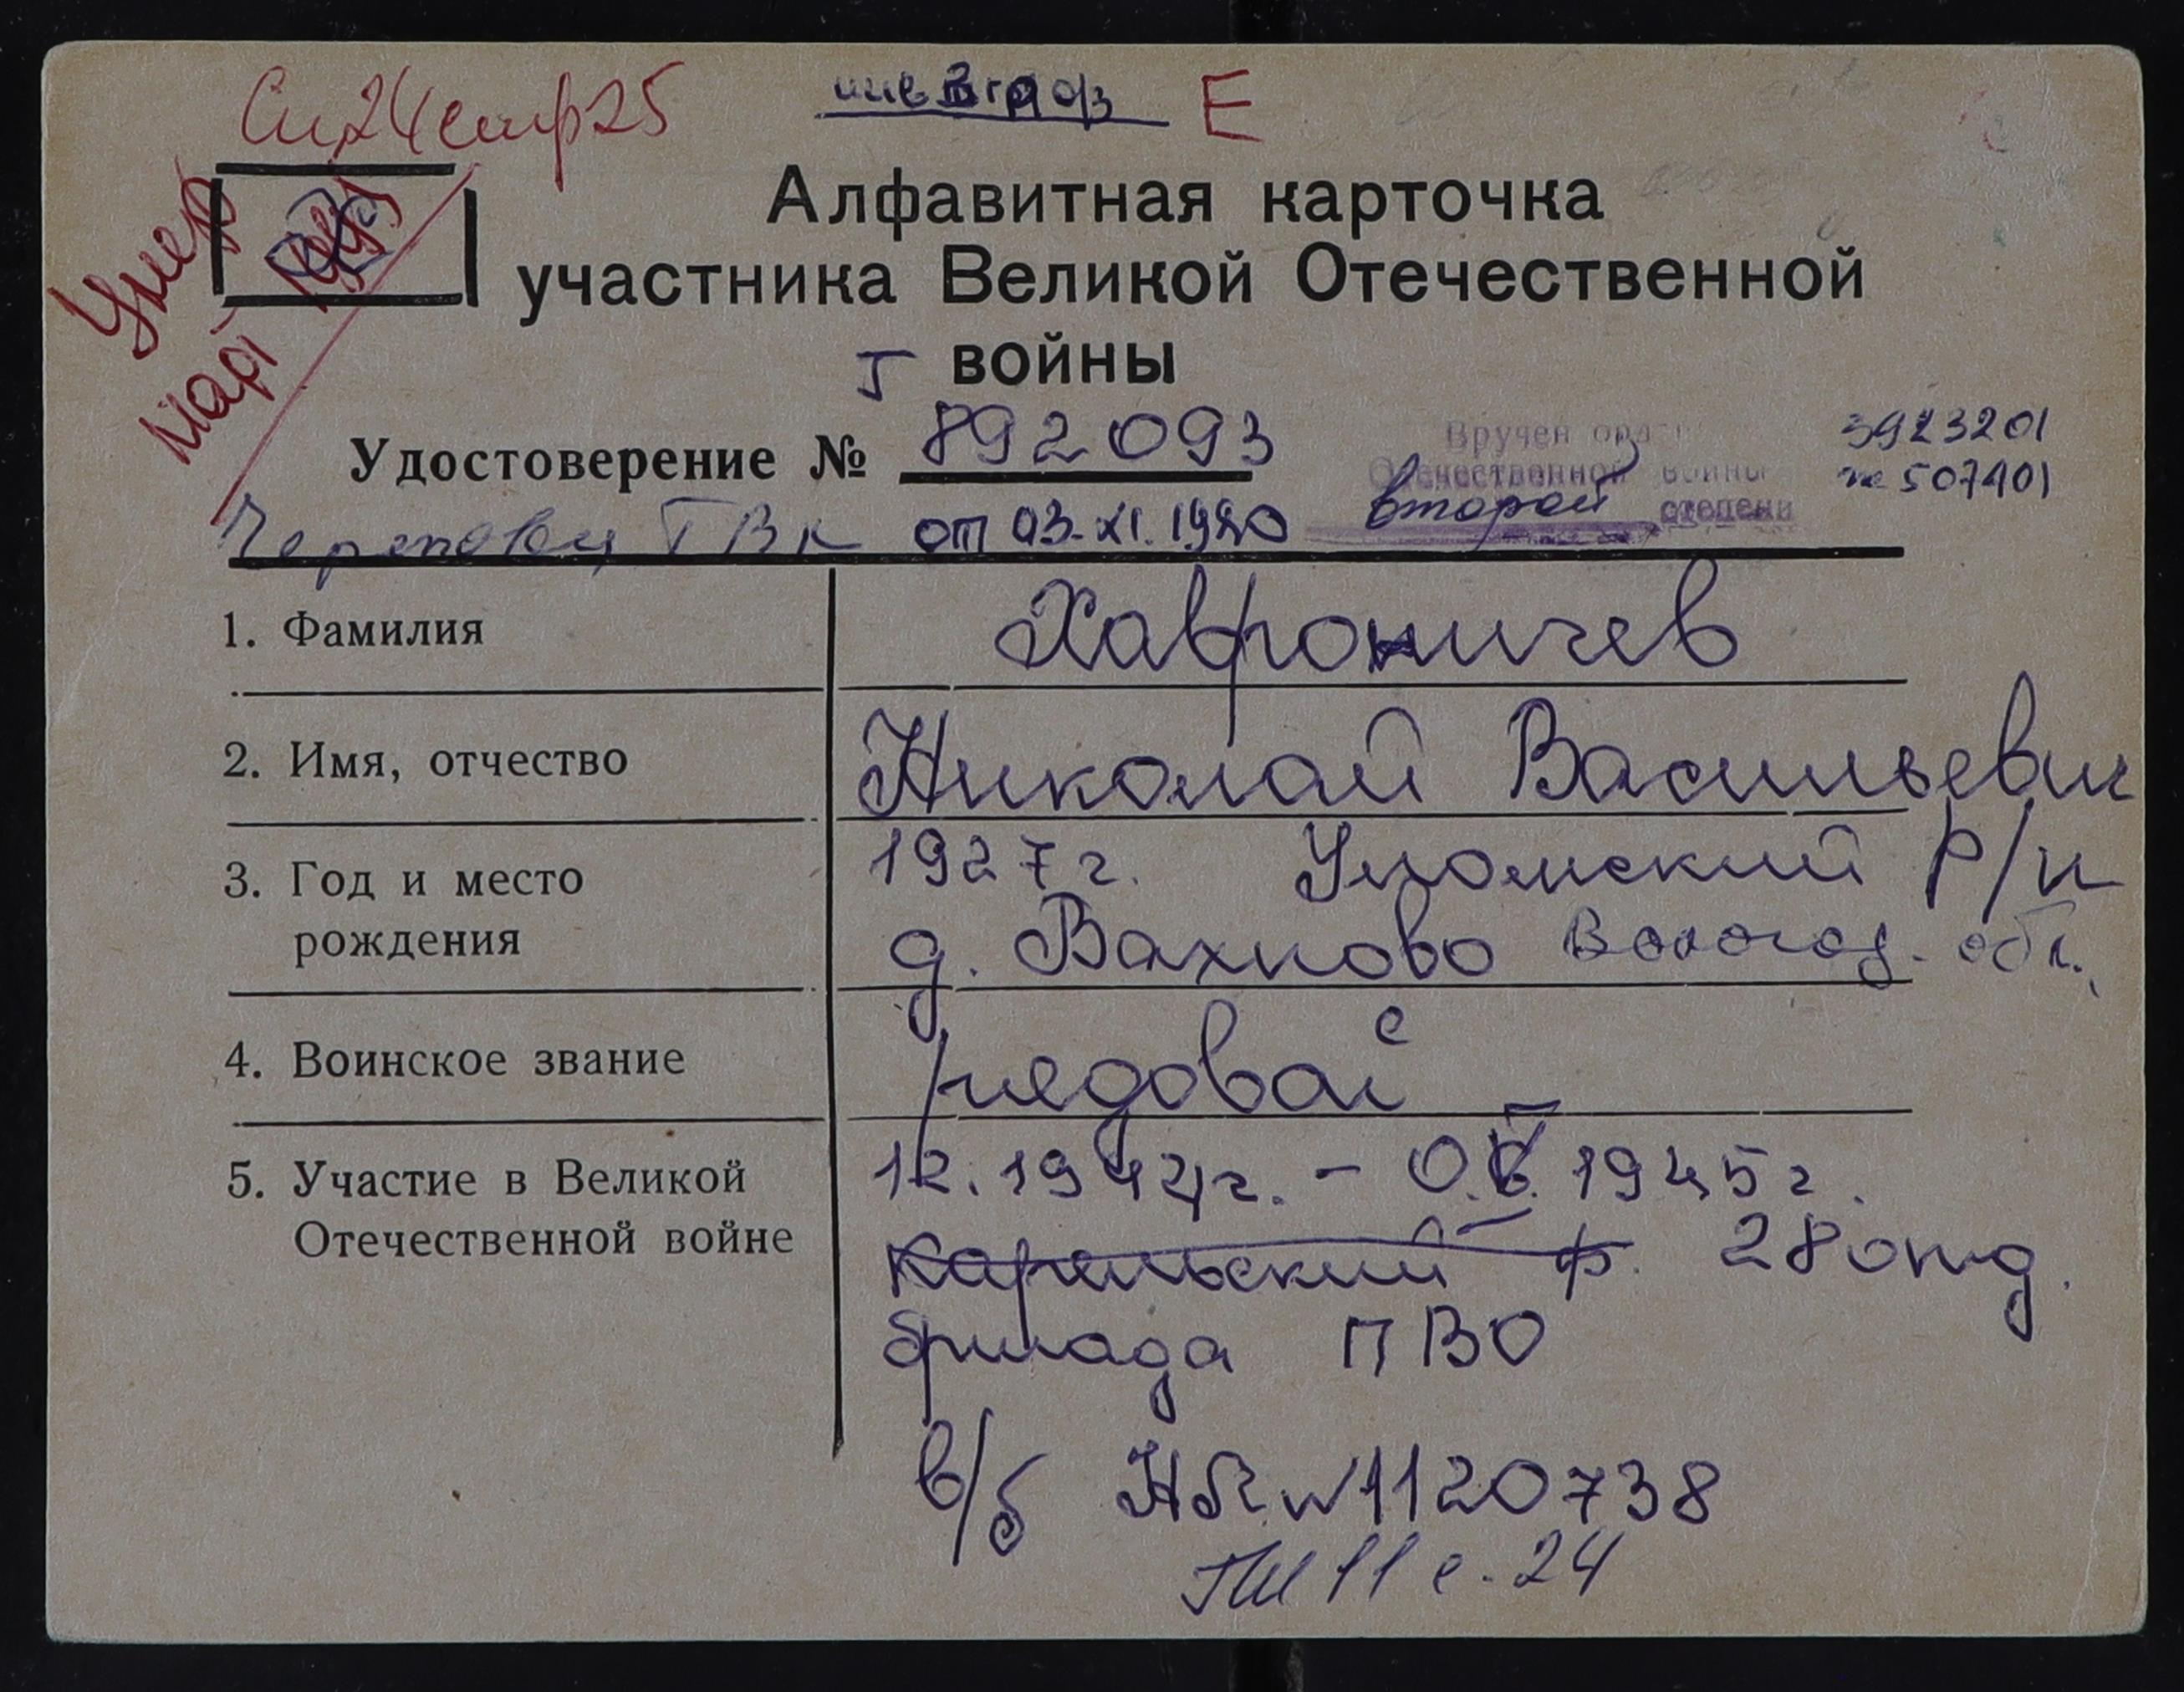 Сп24стр25 инв 3гр оз Е
Умер март
Алфавитная карточка
участника Великой Отечественной
I войны
Удостоверение № 892093
Вручен орден Отечественной войны второй степени
3923201
№ 507401
Череповец ГВК от 03.XI.1980
1. Фамилия Хавроничев
2. Имя, отчество Николай Васильевич
3. Год и место 1927г. Уломский р/н
рождения д. Вахново Вологод. обл.
4. Воинское звание рядовой
5. Участие в Великой 12.1944г. – 0.V.1945г.
Отечественной войне Карельский ф. 28 отд.
бригада ПВО
в/б НЯ №1120738
ГШ 11 с. 24